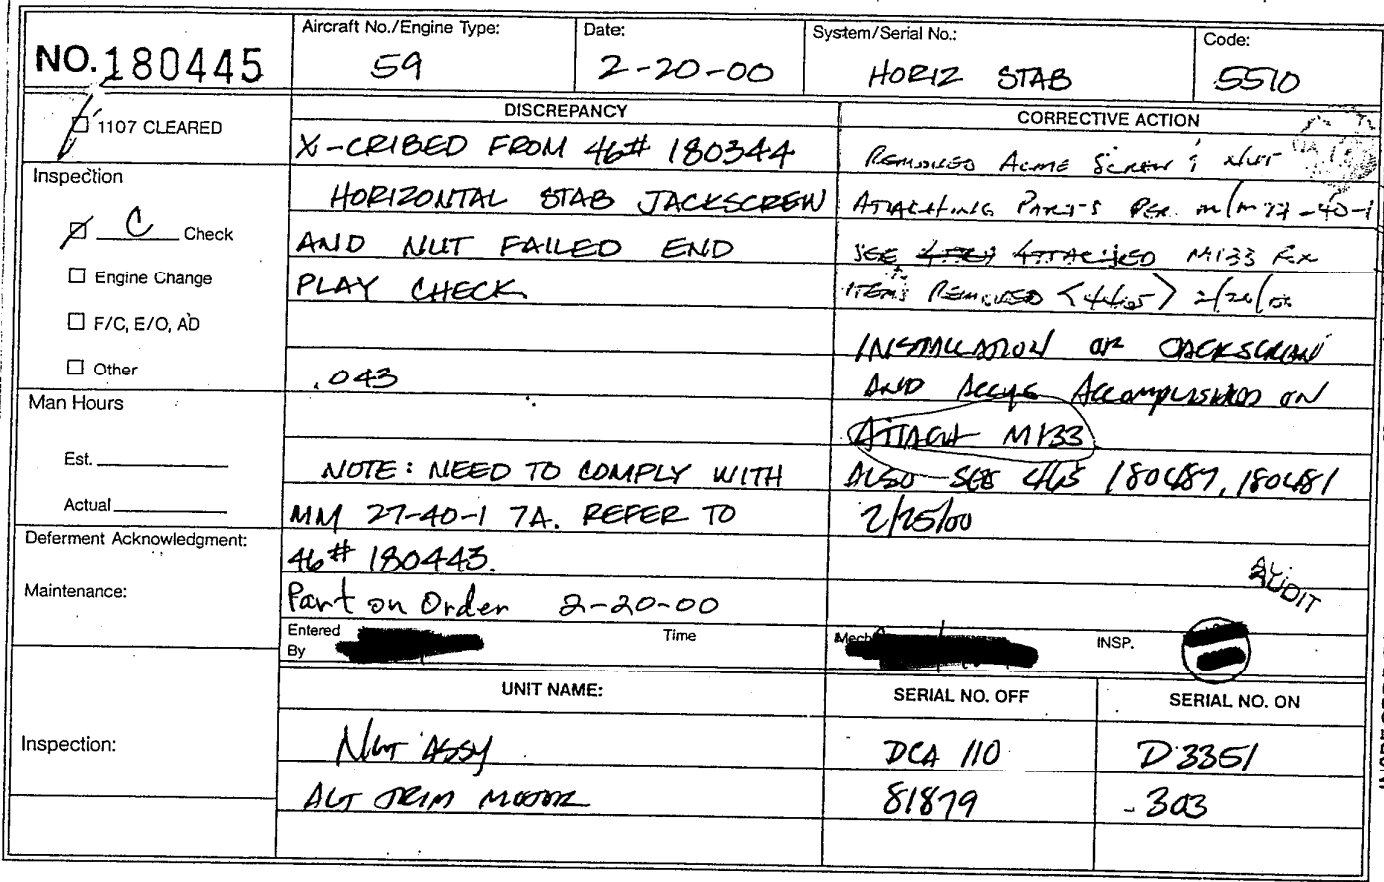 NO. 180445
Aircraft No./Engine Type:
59
Date:
2-20-00
System/Serial No.:
HORIZ STAB
Code:
5510
1107 CLEARED
Inspection
C Check
Engine Change
F/C, E/O, AD
Other
Man Hours
Est.
Actual
Deferment Acknowledgment:
Maintenance:
Inspection:
DISCREPANCY
X-CRIBED FROM 46# 180344
HORIZONTAL STAB JACKSCREW
AND NUT FAILED END
PLAY CHECK.
.043
NOTE: NEED TO COMPLY WITH
MM 27-40-1 7A. REFER TO
46# 180443.
Part on Order 2-20-00
Entered
By
Time
CORRECTIVE ACTION
REMOVED ACME SCREW & NUT
ATTACHING PARTS PER. M/M 27-40-1
SEE ATTACHED M133 FOR
ITEMS REMOVED 2/20/00
INSTALLATION OF JACKSCREW
AND ACCYS ACCOMPLISHED ON
ATTACH M133
ALSO SEE 46S 180487, 180481
2/25/00
AUDIT
Mech
INSP.
UNIT NAME:
SERIAL NO. OFF
SERIAL NO. ON
NUT ASSY
DCA 110
D3351
ALT TRIM MOTOR
81879
-303